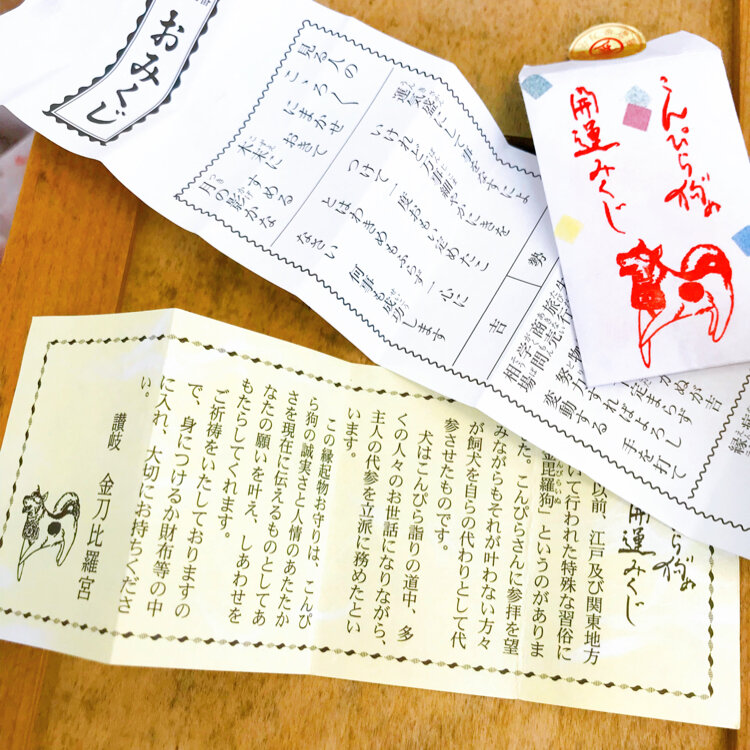 おみくじ
見る人の
こゝろ〳〵
にまかせ
おきて
木末に
すめる
月の影かな
運気盛にして事をなすによ
いけれど万事細やかにきを
つけて一度おもい定めたこ
とはわきめもふらず一心に
なさい 何事も成功します
勢
吉
旅行
商売
学問
相場
かぬが吉
定まらず
すればよろし
変動する
手を打て
こんぴら狗の
開運みくじ
ら狗の
開運みくじ
以前、江戸及び関東地方
いて行われた特殊な習俗に
金毘羅狗」というのがありま
た。こんぴらさんに参拝を望
みながらもそれが叶わない方々
が飼犬を自らの代わりとして代
参させたものです。
犬はこんぴら詣りの道中、多
くの人々のお世話になりながら、
主人の代参を立派に務めたとい
います。
この縁起物お守りは、こんぴ
ら狗の誠実さと人情のあたたか
さを現在に伝えるものとしてあ
なたの願いを叶え、しあわせを
もたらしてくれます。
ご祈祷をいたしておりますの
で、身につけるか財布等の中
に入れ、大切にお持ちくださ
い。
讃岐 金刀比羅宮